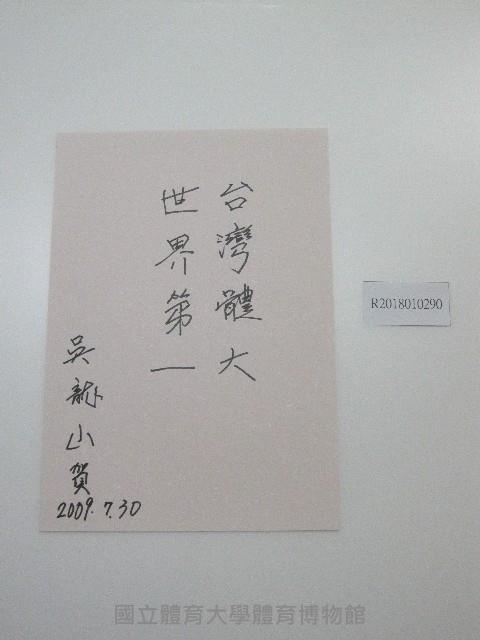 台灣體大
世界第一
吳龍山賀
2009.7.30
R2018010290
國立體育大學體育博物館